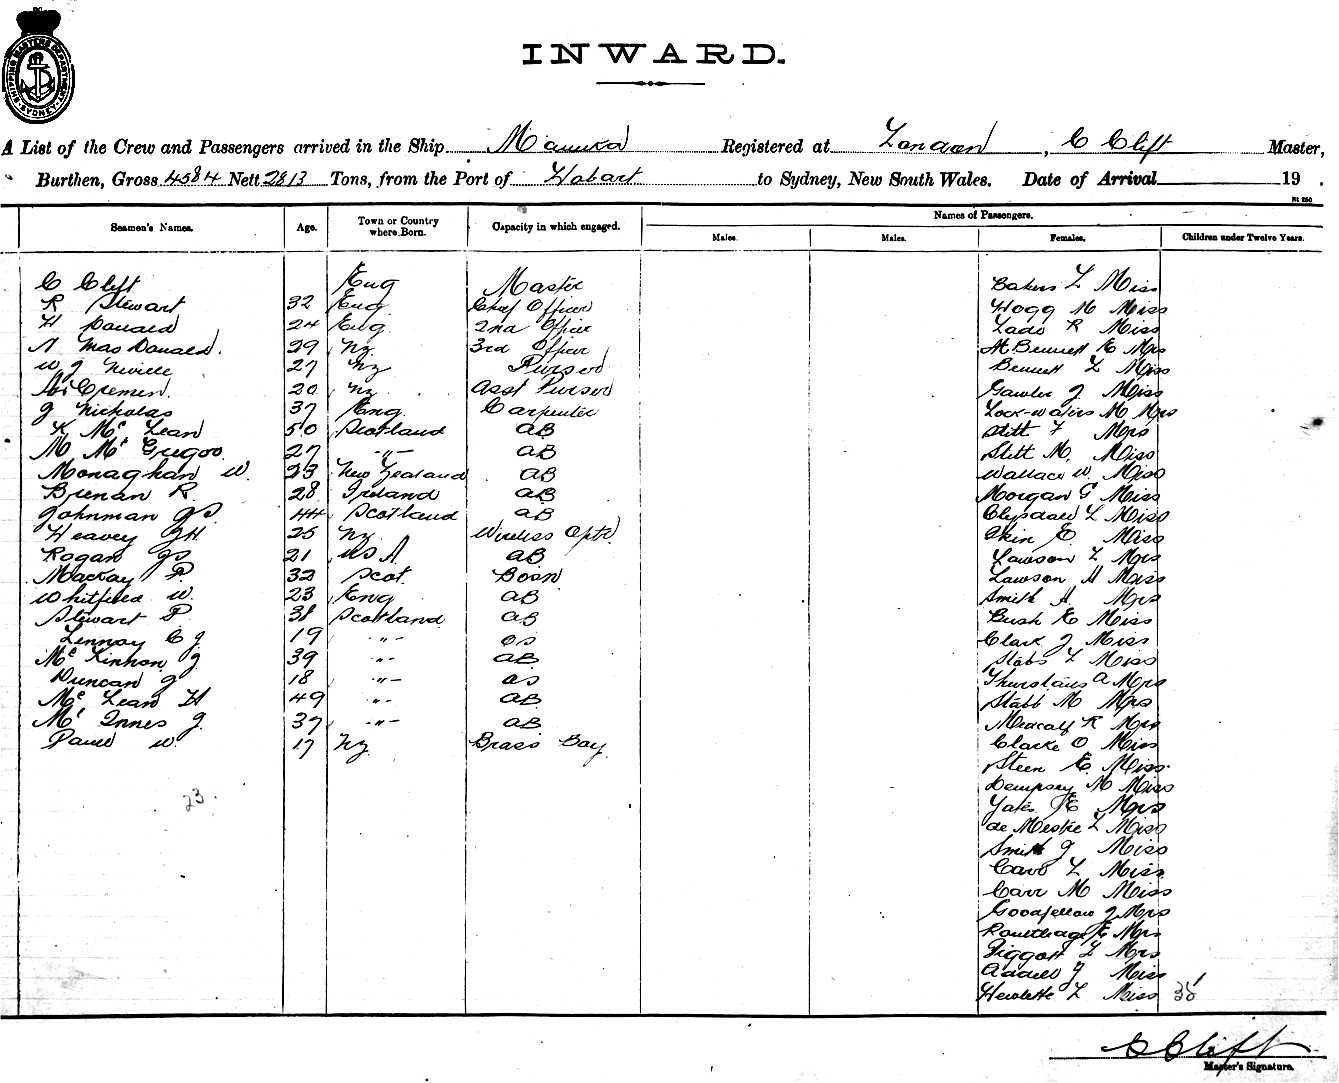 SHIPPING MASTERS DEPARTMENT SYDNEY
INWARD.
A List of the Crew and Passengers arrived in the Ship Manuka Registered at London, C Clift Master,
Burthen, Gross 4584 Nett 2813 Tons, from the Port of Hobart to Sydney, New South Wales. Date of Arrival 19 .
Seamen's Names. Age. Town or Country where Born. Capacity in which engaged. Names of Passengers.
Males. Males. Females. Children under Twelve Years.
C Clift Eng Master Bakers L Miss
R Stewart 32 Eng Chief Officer Hogg M Miss
H 24 Eng 2nd Officer Lade R Miss
A MacDonald 29 Nz 3rd Officer Bennett E Mrs
W J Neville 27 Nz Purser Bennett L Miss
Cremen 20 Nz Asst Purser Gawler J Miss
J Nicholas 37 Eng Carpenter M Mrs
K McLean 50 Scotland AB Stitt F Mrs
M McGregor 27 -"- AB Stitt M Miss
Monaghan W 23 New Zealand AB Wallace W Miss
Brenan R 28 Ireland AB Morgan G Miss
Johnman J S 44 Scotland AB Clysdale L Miss
Heavey J H 25 Nz Wireless Optr Akin E Miss
Rogan J S 21 USA AB Lawson L Mrs
Mackay P 32 Scot Bosn Lawson H Miss
Whitfield W 23 Eng AB Smith A Mrs
Stewart P 38 Scotland AB Bush E Miss
Lennox C J 19 -"- OS Clark J Miss
McKinnon J 39 -"- AB Stabb L Miss
Duncan J 18 -"- OS A Mrs
McLean H 49 -"- AB Stabb M Mrs
McInnes J 37 -"- AB Medcalf R Mrs
W 17 Nz Brass Boy Clarke O Miss
Steen E Miss
23. Dempsey M Miss
Yates E Mrs
de Mestre L Miss
Smith J Miss
L Miss
Carr M Miss
Goodfellow J Mrs
E Mrs
Piggott L Mrs
J Miss
Hewlette L Miss 35
C Clift
Master's Signature.